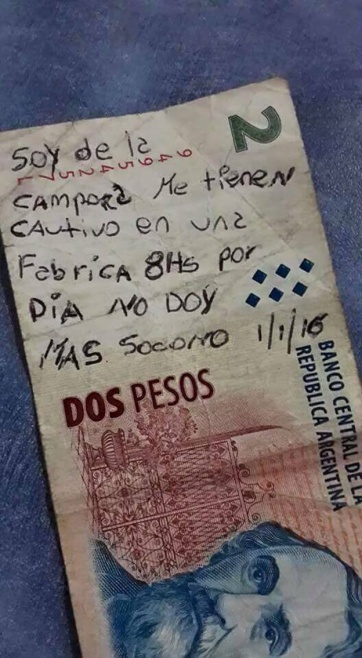 2
Soy de la
Campora Me tienen
cautivo en una
Fabrica 8Hs por
Dia No Doy
Mas Socorro 1/1/16
DOS PESOS
BANCO CENTRAL DE LA
REPUBLICA ARGENTINA